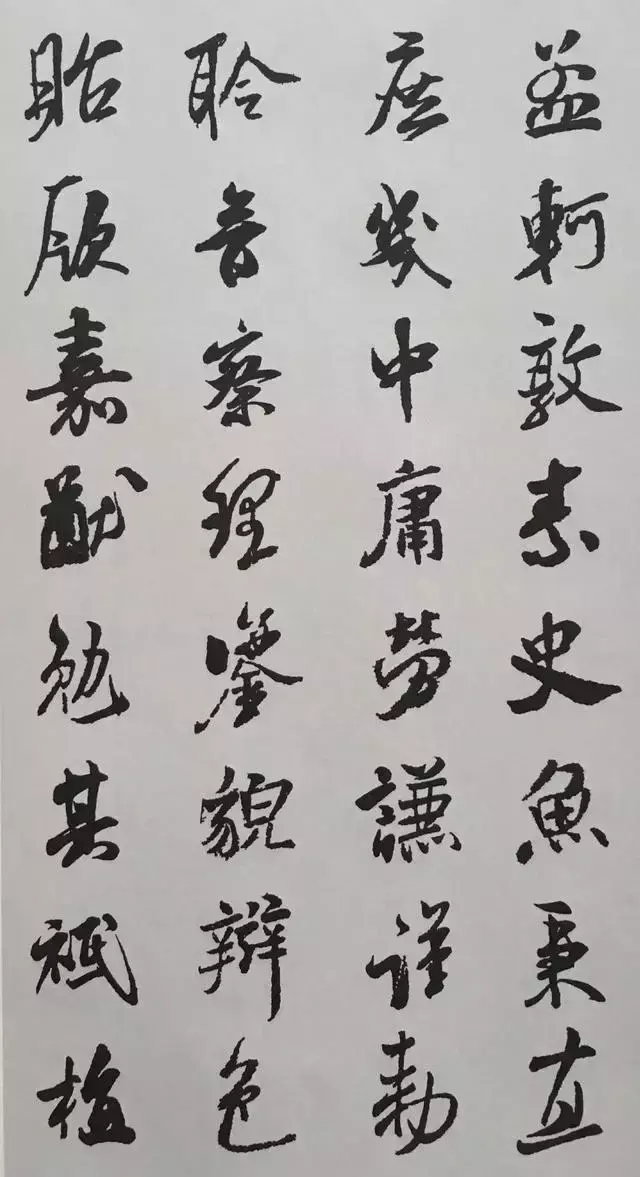 孟軻敦素史魚秉直
庶幾中庸勞謙謹勅
聆音察理鑒貌辨色
貽厥嘉猷勉其祗植